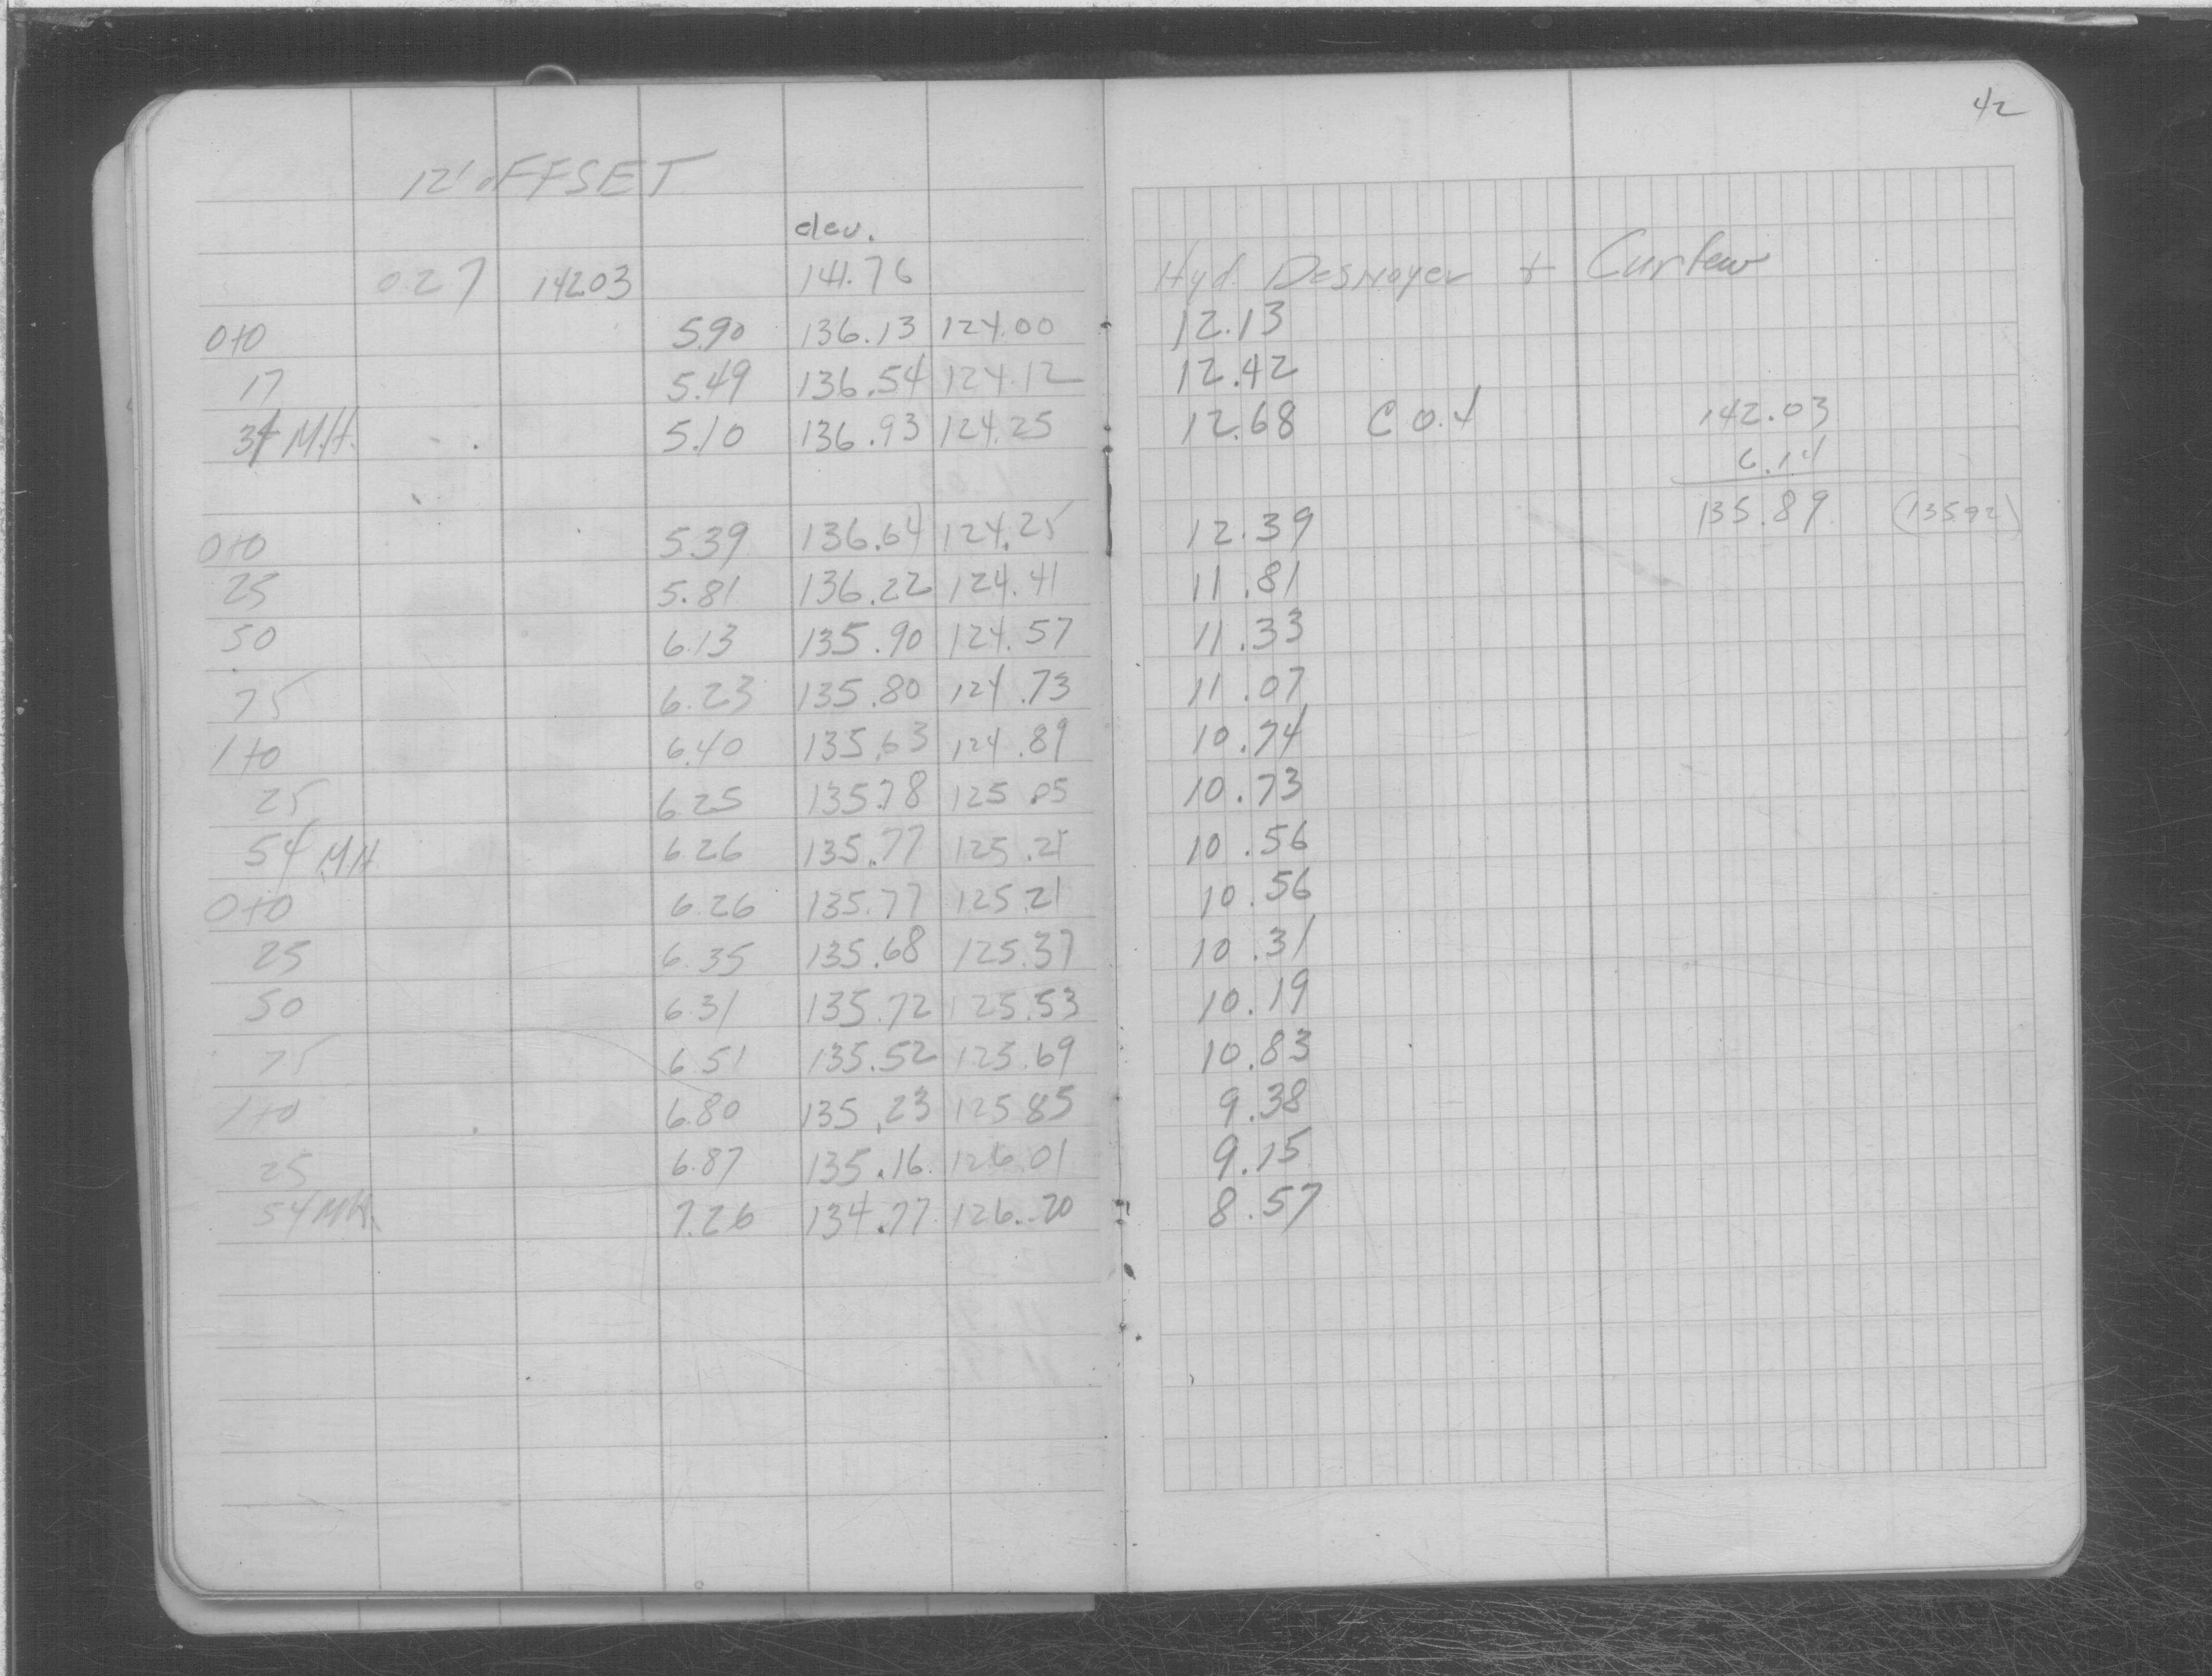 42
12' OFFSET
elev.
0.27 142.03 141.76 Hyd. Desnoyer + Curfew
0+0 5.90 136.13 124.00 12.13
17 5.49 136.54 124.12 12.42
34 M.H. 5.10 136.93 124.25 12.68 C 0.4 142.03
6.14
135.89 (135.92)
0+0 5.39 136.64 124.25 12.39
25 5.81 136.22 124.41 11.81
50 6.13 135.90 124.57 11.33
75 6.23 135.80 124.73 11.07
1+0 6.40 135.63 124.89 10.74
25 6.25 135.78 125.05 10.73
54 M.H. 6.26 135.77 125.21 10.56
0+0 6.26 135.77 125.21 10.56
25 6.35 135.68 125.37 10.31
50 6.31 135.72 125.53 10.19
75 6.51 135.52 125.69 10.83
1+0 6.80 135.23 125.85 9.38
25 6.87 135.16 126.01 9.15
54 M.H. 7.26 134.77 126.20 8.57